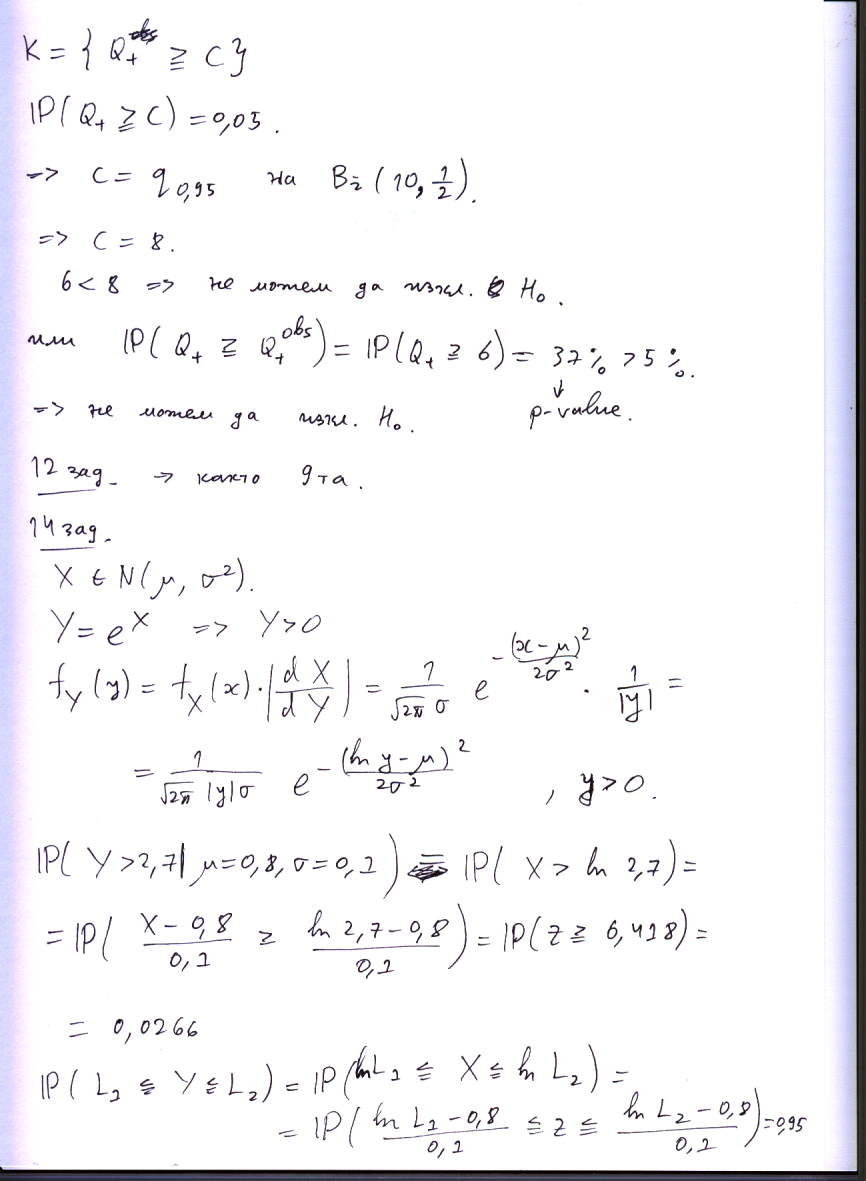 K = { Q₊ᵒᵇˢ ≥ C }
ℙ(Q₊ ≥ C) = 0,05.
=> C = q₀,₉₅ на Bi(10, 1/2).
=> C = 8.
6 < 8 => не можем да изкл. H₀.
или ℙ(Q₊ ≥ Q₊ᵒᵇˢ) = ℙ(Q₊ ≥ 6) = 37% > 5%.
=> не можем да изкл. H₀. ↓ p-value.
12 зад. → както 9та.
14 зад.
X ∈ N(μ, σ²).
Y = eˣ => Y > 0
f_Y(y) = f_X(x)·|dX/dY| = 1/(√(2π) σ) e^(-(x-μ)²/(2σ²)) · 1/|y| =
= 1/(√(2π) |y| σ) e^(-(ln y-μ)²/(2σ²)), y > 0.
ℙ(Y > 2,7 | μ=0,8, σ=0,1) = ℙ(X > ln 2,7) =
= ℙ((X-0,8)/0,1 ≥ (ln 2,7-0,8)/0,1) = ℙ(Z ≥ 6,418) =
= 0,0266
ℙ(L₁ ≤ Y ≤ L₂) = ℙ(ln L₁ ≤ X ≤ ln L₂) =
= ℙ((ln L₁-0,8)/0,1 ≤ Z ≤ (ln L₂-0,8)/0,1) = 0,95